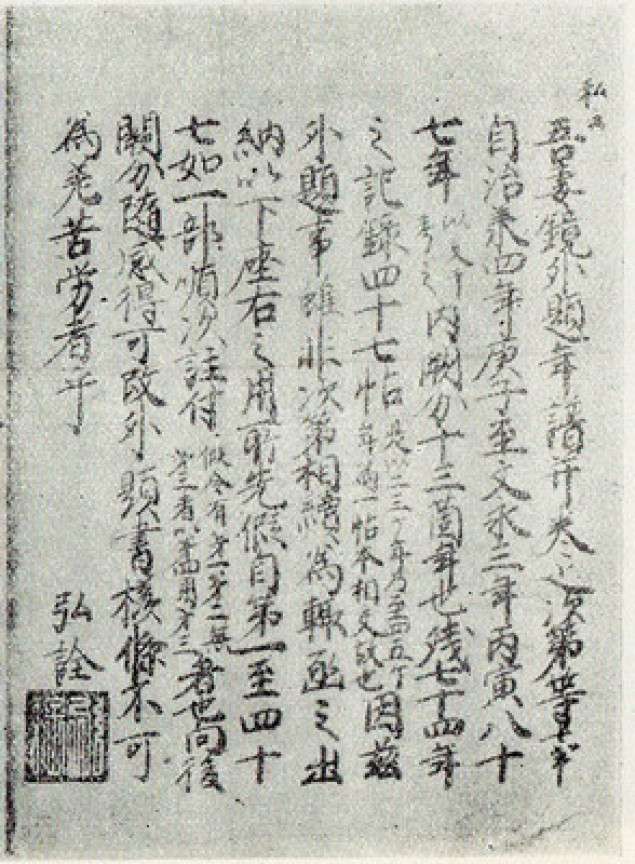 私云
吾妻鏡外題年譜并次第等事
自治承四年庚子至文永三年丙寅八十
七年考之内闕分十三箇年也残七十四年
之記録四十七帖是以二三ケ年乃至四五ケ年為一帖本相交故也因茲
外題事雖非次第相続為輙函之出
納以下座右之用所先假自第一至四十
七如一部順次註付假令有第一第二無第三者以第四用第三者也向後
闕分随感得可改外題書様條不可
為差苦労者乎
弘詮